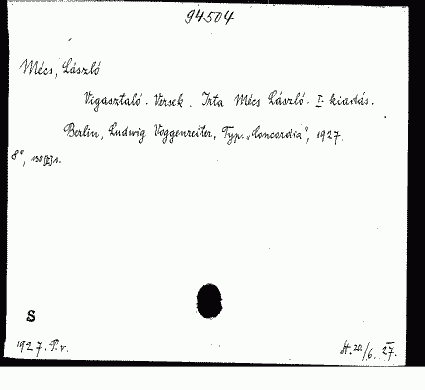 94504
Mécs, László
Vigasztaló. Versek. Irta Mécs László. I. kiadás.
Berlin, Ludwig Voggenreiter, Typ. „Concordia", 1927.
8°, 130 l.
S
1927. P. v.
H. 20/6. 27.